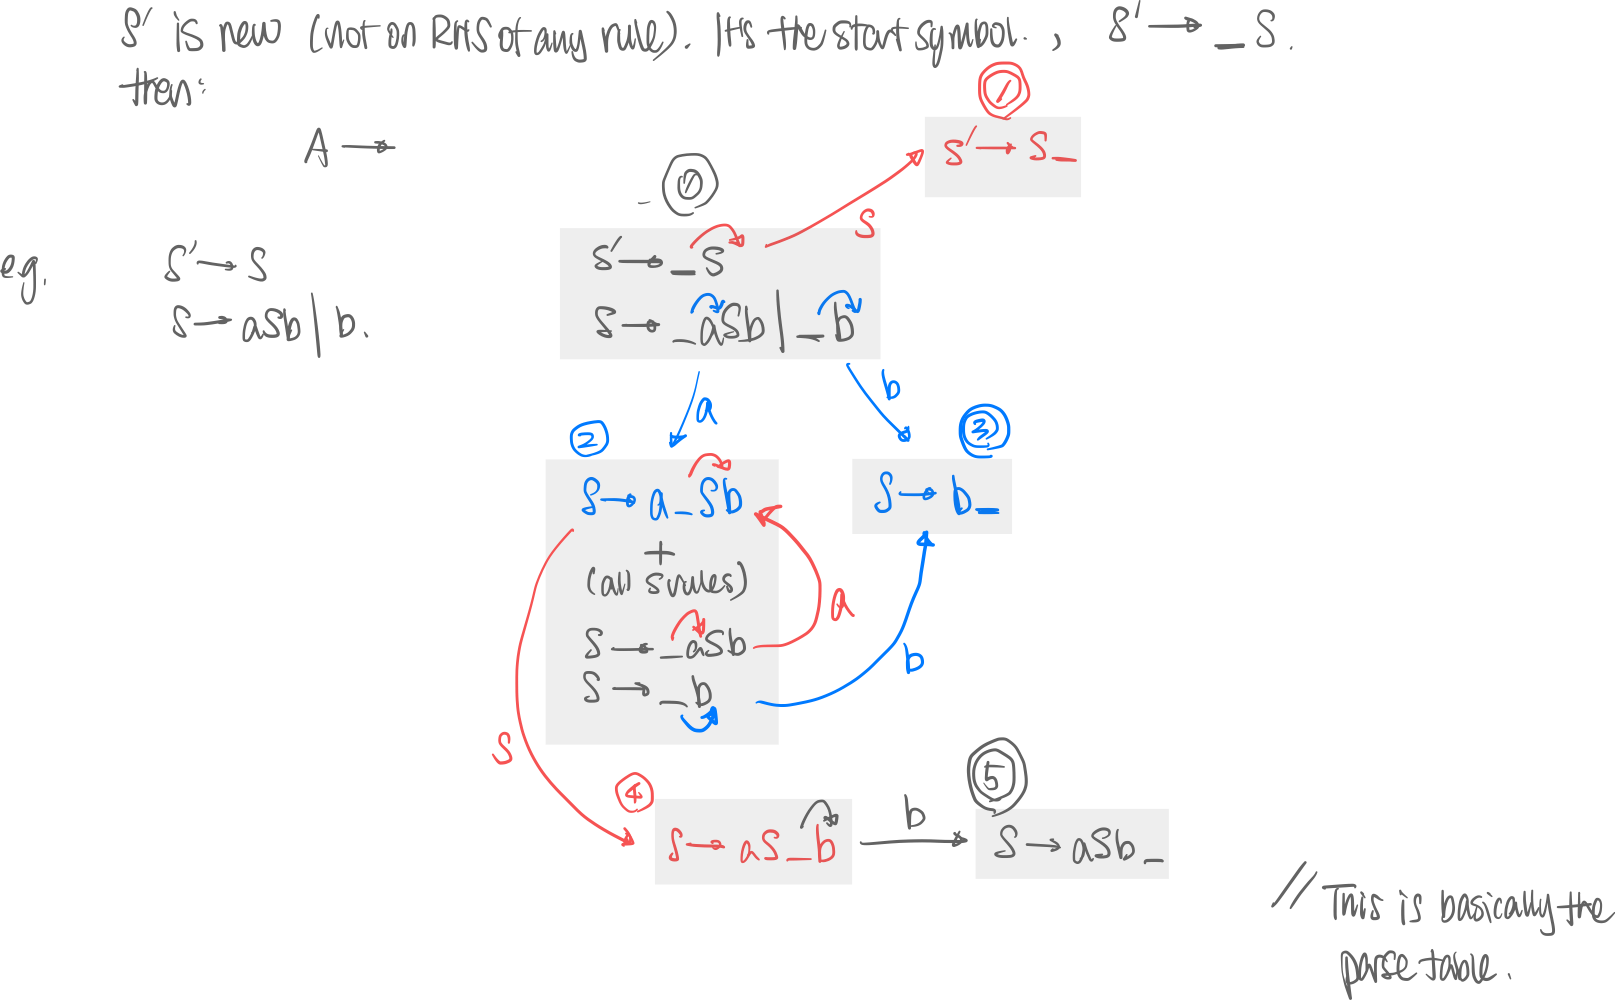 S' is new (not on RHS of any rule). It's the start symbol. , S' → _ S.
then:
A →
1
S' → S _
0
S
eg.
S' → S
S → aSb | b.
S' → _ S
S → _ aSb | _ b
a
b
2
3
S → a _ Sb
S → b _
+
(all S rules)
a
S → _ aSb
S → _ b
b
S
4
5
S → aS _ b
b
S → aSb _
// This is basically the
parse table.